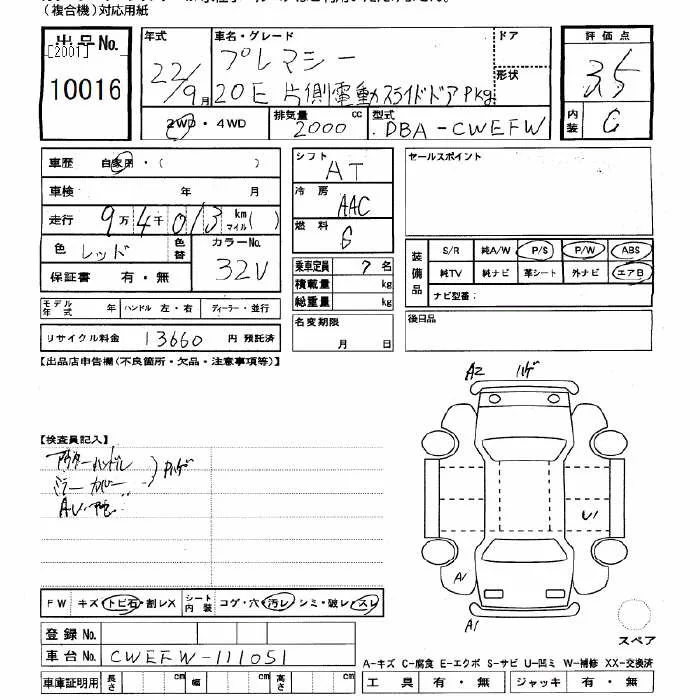 (複合機)対応用紙
出品No.
[2001]
10016
年式
22/9月
車名・グレード
プレマシー
20E 片側電動スライドドアPkg
ドア
形状
評価点
3.5
内装
C
2WD・4WD
排気量
2000 cc
型式
DBA-CWEFW
車歴 自家用・( )
車検 年 月
走行 9万4千013 km マイル( )
色 レッド
色替
カラーNo.
32V
保証書 有・無
シフト
AT
冷房
AAC
燃料
G
乗車定員 7名
積載量 kg
総重量 kg
名変期限
月 日
セールスポイント
装備品
S/R 純A/W P/S P/W ABS
純TV 純ナビ 革シート 外ナビ エアB
ナビ型番:
後日品
モデル年式 年 ハンドル 左・右 ディーラー・並行
リサイクル料金 13660 円 預託済
【出品店申告欄(不良箇所・欠品・注意事項等)】
【検査員記入】
アウターハンドル
ミラーカバー
Pハゲ
A2 ハゲ
U1
A1
A1
スペア
FW キズ・トビ石・割レX シート内装 コゲ・穴・汚レ・シミ・破レ・スレ
登録No.
車台No. CWEFW-111051
車庫証明用 長さ cm 幅 cm 高さ cm
A-キズ C-腐食 E-エクボ S-サビ U-凹ミ W-補修 XX-交換済
工具 有・無 ジャッキ 有・無